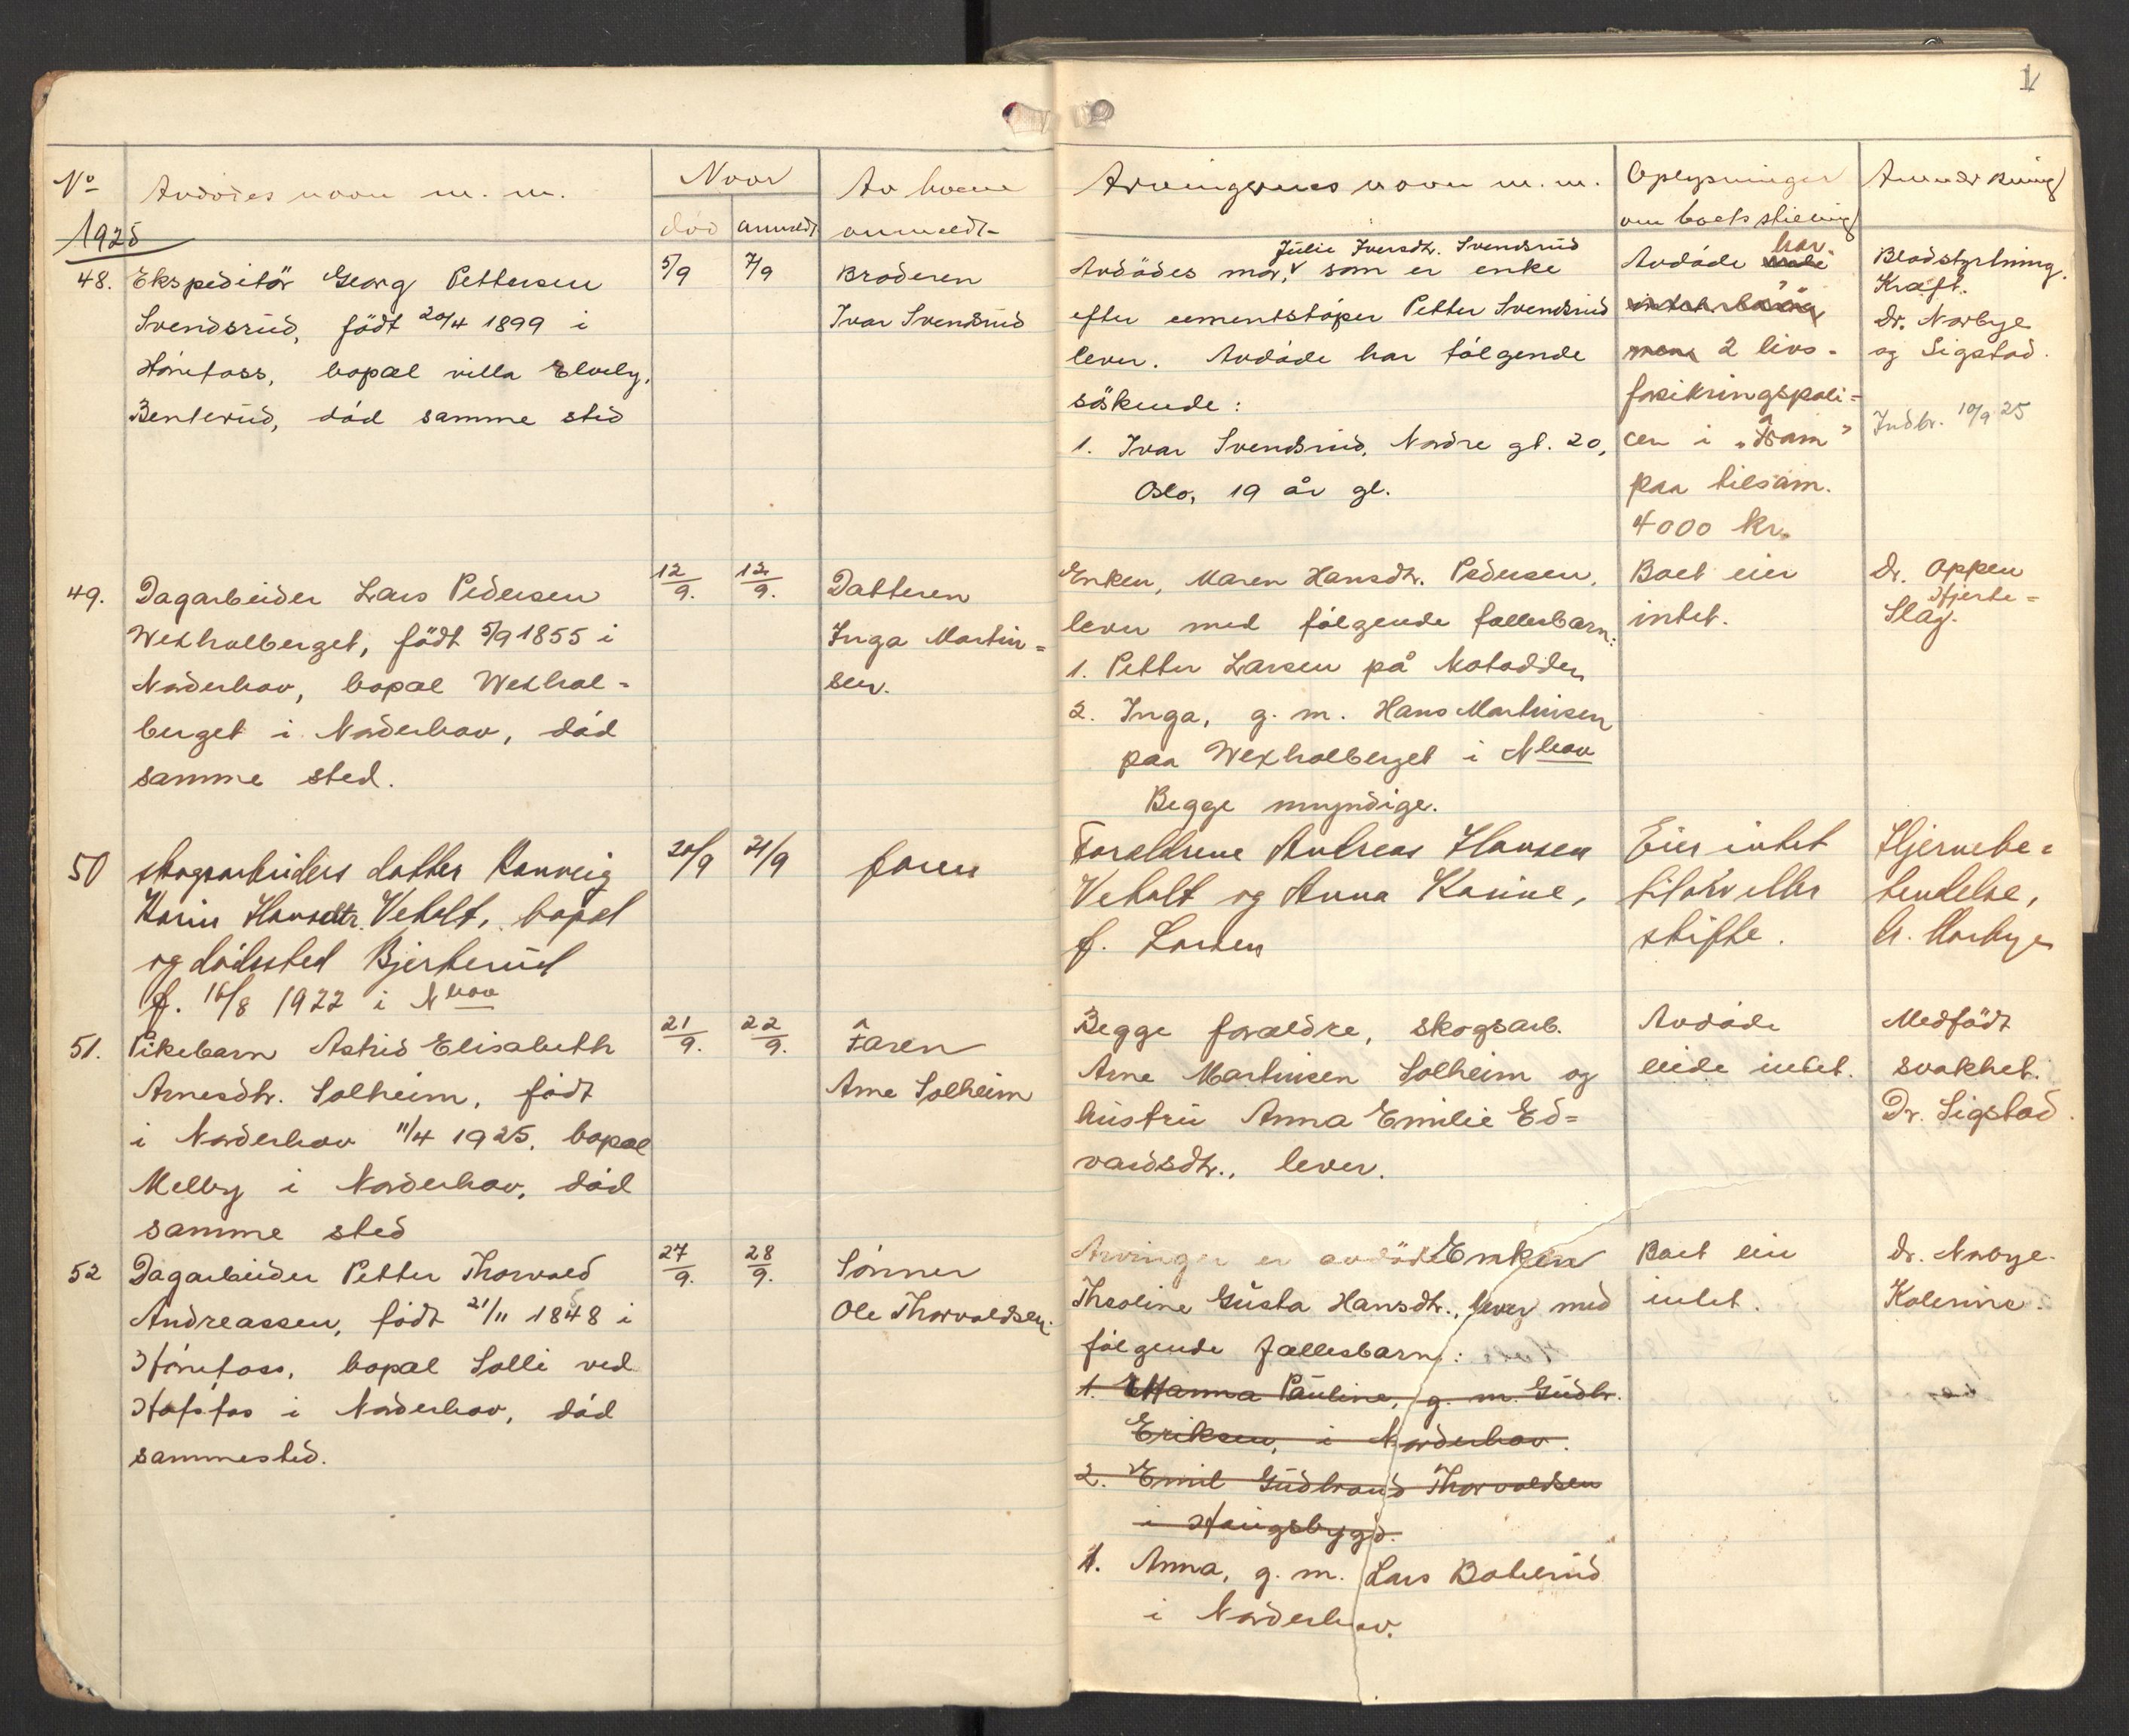 1
No
Avdødes navn m. m.
Naar
død
anmeldt
Av hvem
anmeldt
Arvingernes navn m. m.
Oplysninger
om boets stilling
Anmerkning
1925
48. Ekspeditör Georg Pettersen
Svendsrud, födt 20/4 1899 i
Hönefoss, bopæl villa Elvely,
Benterud, död samme sted
5/9
7/9
Broderen
Ivar Svendsrud
Julie Iversdtr. Svendsrud
Avdödes mor, v som er enke
efter cementstöper Petter Svendsrud
lever. Avdöde har fölgende
söskende:
1. Ivar Svendsrud, Nordre gt. 20,
Oslo, 19 år gl.
har
Avdöde
men 2 livs-
forsikringspoli=
cer i „Fram"
paa tilsam.
4000 kr.
Blodstyrtning.
Kræft.
Dr. Norbye
og Sigstad.
Indbr. 10/9 25
49. Dagarbeider Lars Pedersen
Wexhalberget, födt 5/9 1855 i
Norderhov, bopæl Wexhal-
berget i Norderhov, död
samme sted.
12/9.
12/9.
Datteren
Inga Martin=
sen.
Enken, Maren Hansdtr. Pedersen,
lever med fölgende fællesbarn:
1. Petter Larsen på Notodden
2. Inga, g. m. Hans Martinsen
paa Wexhalberget i Nhov
Begge myndige.
Boet eier
intet.
Dr. Oppen
Hjerte=
slag.
50 skogsarbeiders datter Ranveig
Karin Hansdtr. Veholt, bopæl
og dödssted Bjerkerud
f. 16/8 1922 i Nhov
20/9
21/9
faren
Forældrene Andreas Hansen
Veholt og Anna Karine,
f. Larsen
Eier intet
tilov eller
skifte.
Hjernebe=
tendelse,
Dr. Norbye
51. Pikebarn Astrid Elisabeth
Arnesdtr. Solheim, födt
i Norderhov 11/4 1925, bopæl
Melby i Norderhov, död
samme sted
21/9.
22/9.
Faren
Arne Solheim
Begge forældre, skogsarb.
Arne Martinsen Solheim og
hustru Anna Emilie Ed=
vardsdtr., lever.
Avdöde
eide intet.
Medfödt
svakhet.
Dr. Sigstad.
52 Dagarbeider Petter Thorvald
Andreassen, födt 21/11 1848 i
Hönefoss, bopæl Solli ved
Hofsfos i Norderhov, död
sammested.
27/9.
28/9.
Sönnen
Ole Thorvaldsen.
Arvinger er avdöde Enken
Theoline Gusta Hansdtr., lever med
fölgende fællesbarn:
1. Hanna Pauline, g. m. Gudbr.
Eriksen, i Norderhov.
2. Emil Gudbrand Thorvaldsen
i Haugsbygd.
1. Anna, g. m. Lars Boterud
i Norderhov.
Boet eier
intet.
Dr. Norbye.
Kolerine.